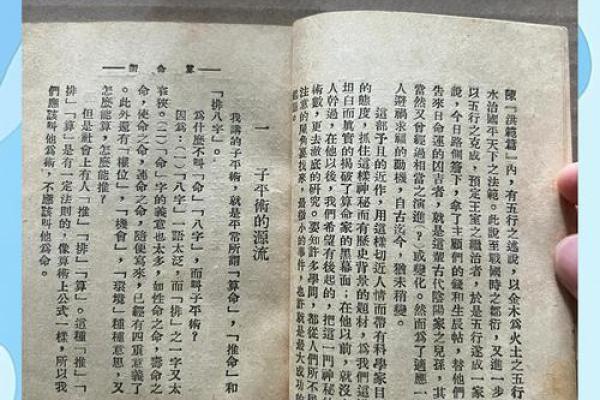 陳『洪範篇』內,有五行之述說,以金木爲火土之五行
水治國平天下之法範。此說至戰國時之鄒衍,又進一步
以五行之克成,預定王室之繼治者,於是五行遂成一家
說,今日路側簷下,拿了主顧們的錢和生辰帖,替他們
告來日命運的凶吉者,就是這輩古代陰陽家之兒孫,其
當然又曾經過相當之演進(?)或變化。然而爲了適應一
人避禍求福的動機,自古迄今,猶未稍變。
這部予且的近作,用這樣切近人情而帶有科學家目
的態度,抓住這樣神秘而有歷史背景的題材,爲我們這
坦白而眞實的揭破了算命家的黑幕面;在他以前,就沒
人幹過,在他以後,我們希望有後起的,把這一門神秘
術數,更去澈底的研究。要知許多學問,都從人們所不
注意的屋角裏找來,最微小的事件,也許就是最大成功
算命
一 子平術的源流
我講的子平術,就是平常所謂「算命」,「推命」和
「排八字」。
爲什麼不叫「命」「八字」,而叫子平術?
因爲:(一)「八字」一語太泛,而「排」之一字又太
狹。(二)「命」字的義意也太多,如性命之命,壽命之
命,使命之命,運命之命,隨便寫來,已經有四重意義了
。此外還有「權位」,「機會」,「環境」種種意思,又
怎麼能算,怎麼能推?
但是社會上有人「推」「排」「算」。這種「推」「
排」「算」是有一定法則的,像算術上公式一樣,所以我
們應該叫他爲術,不應該叫他爲命。